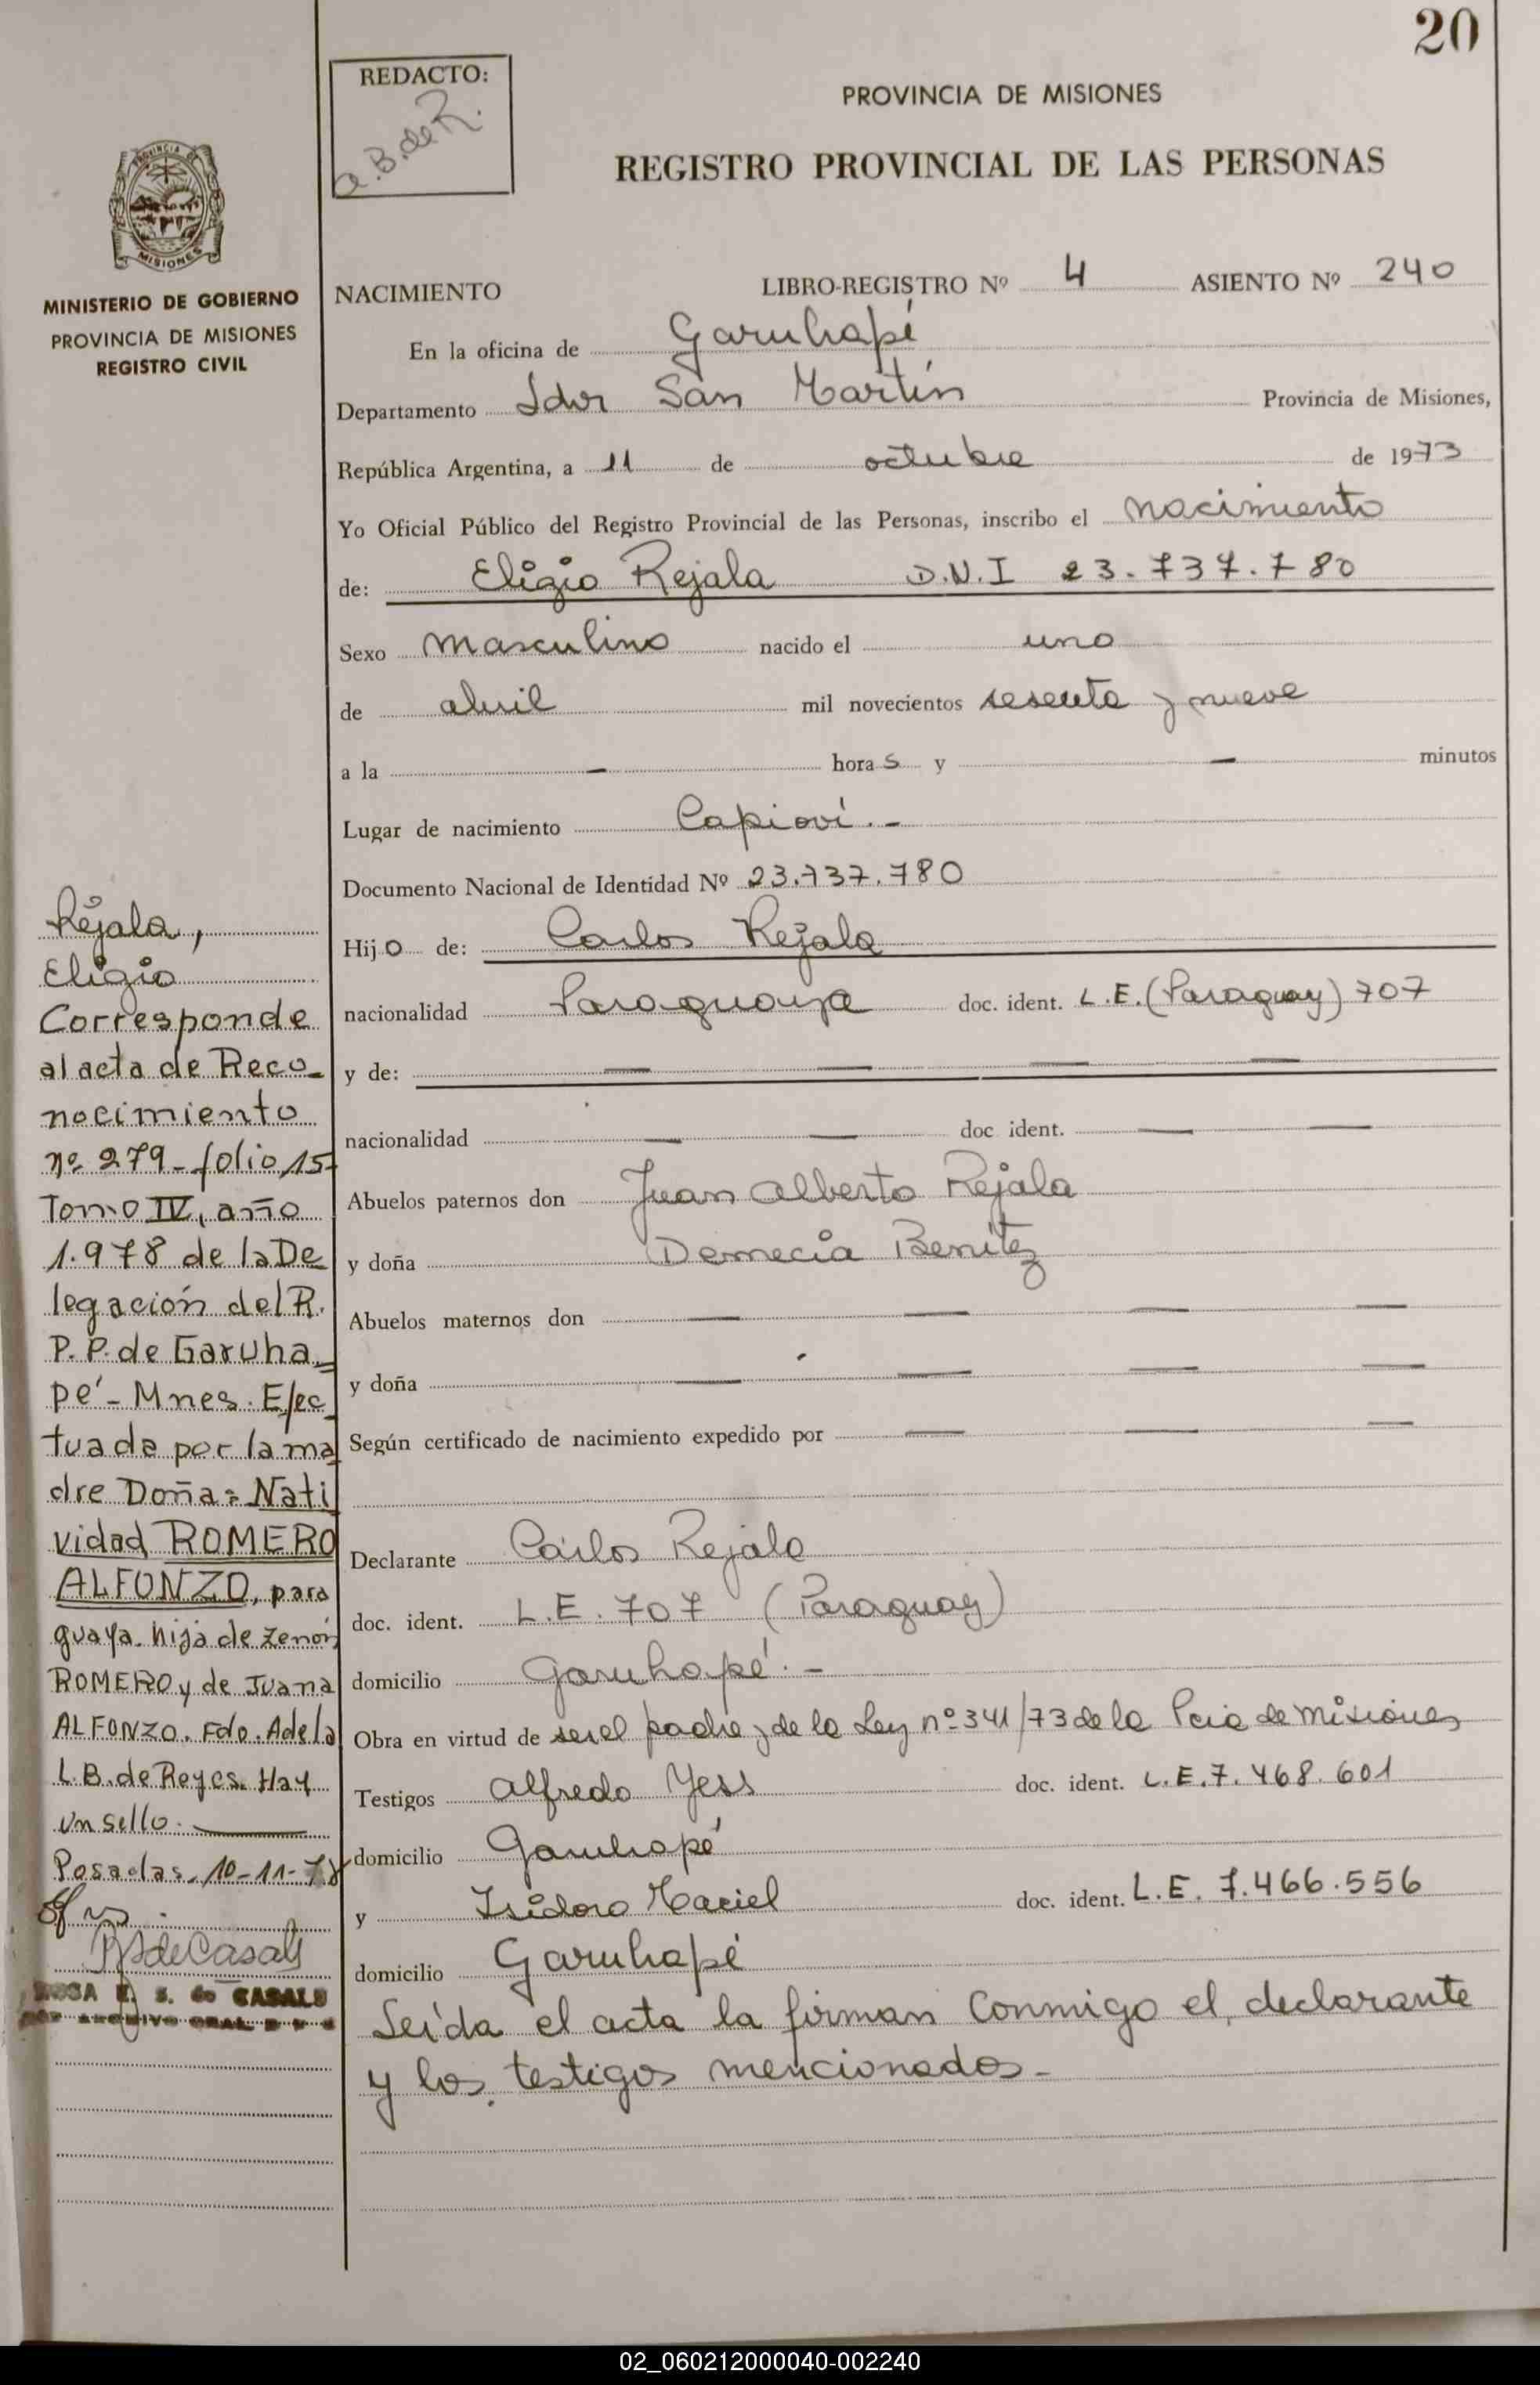 20
REDACTO:
a.B.de R.
PROVINCIA DE MISIONES
REGISTRO PROVINCIAL DE LAS PERSONAS
PROVINCIA DE
MISIONES
MINISTERIO DE GOBIERNO
PROVINCIA DE MISIONES
REGISTRO CIVIL
NACIMIENTO LIBRO-REGISTRO Nº 4 ASIENTO Nº 240
En la oficina de Garuhapé
Departamento Ldor San Martín Provincia de Misiones,
República Argentina, a 11 de octubre de 1973
Yo Oficial Público del Registro Provincial de las Personas, inscribo el nacimiento
de: Eligio Rejala D.N.I 23.737.780
Sexo masculino nacido el uno
de abril mil novecientos sesenta y nueve
a la — hora s y — minutos
Lugar de nacimiento Capioví.-
Documento Nacional de Identidad Nº 23.737.780
Hij o de: Carlos Rejala
nacionalidad Paraguaya doc. ident. L.E.(Paraguay) 707
y de: — — — —
nacionalidad — — doc ident. — —
Abuelos paternos don Juan Alberto Rejala
y doña Demecia Benítez
Abuelos maternos don — — — —
y doña — — — —
Según certificado de nacimiento expedido por — — —
Declarante Carlos Rejala
doc. ident. L.E. 707 (Paraguay)
domicilio Garuhapé.-
Obra en virtud de ser el padre y de la Ley nº 341/73 de la Pcia de Misiones
Testigos Alfredo Yess doc. ident. L.E. 7.468.601
domicilio Garuhapé
y Isidoro Maciel doc. ident. L.E. 7.466.556
domicilio Garuhapé
Leída el acta la firman conmigo el declarante
y los testigos mencionados-
Rejala,
Eligio
Corresponde
al acta de Reco-
nocimiento
nº 279-folio 15-
Tomo IV, año
1.978 de la De
legación del R.
P.P. de Garuha-
pé-Mnes. Efec
tuada por la ma
dre Doña: Nati
vidad ROMERO
ALFONZO, para
guaya. hija de Zenón
ROMERO y de Juana
ALFONZO. Fdo. Adela
L.B. de Reyes. Hay
un sello. —
Posadas, 10-11-78
de Casals
E. S. de CASALS
02_060212000040-002240